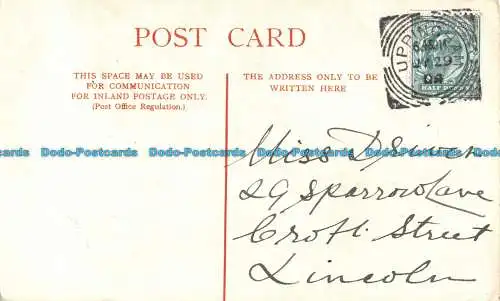 POST CARD
THIS SPACE MAY BE USED
FOR COMMUNICATION
FOR INLAND POSTAGE ONLY.
(Post Office Regulation.)
THE ADDRESS ONLY TO BE
WRITTEN HERE
UPP
29
08
HALF PENNY
Dodo-Postcards Dodo-Postcards Dodo-Postcards Dodo-Postcards
Miss
29 Sparrow Lane
Croft Street
Lincoln